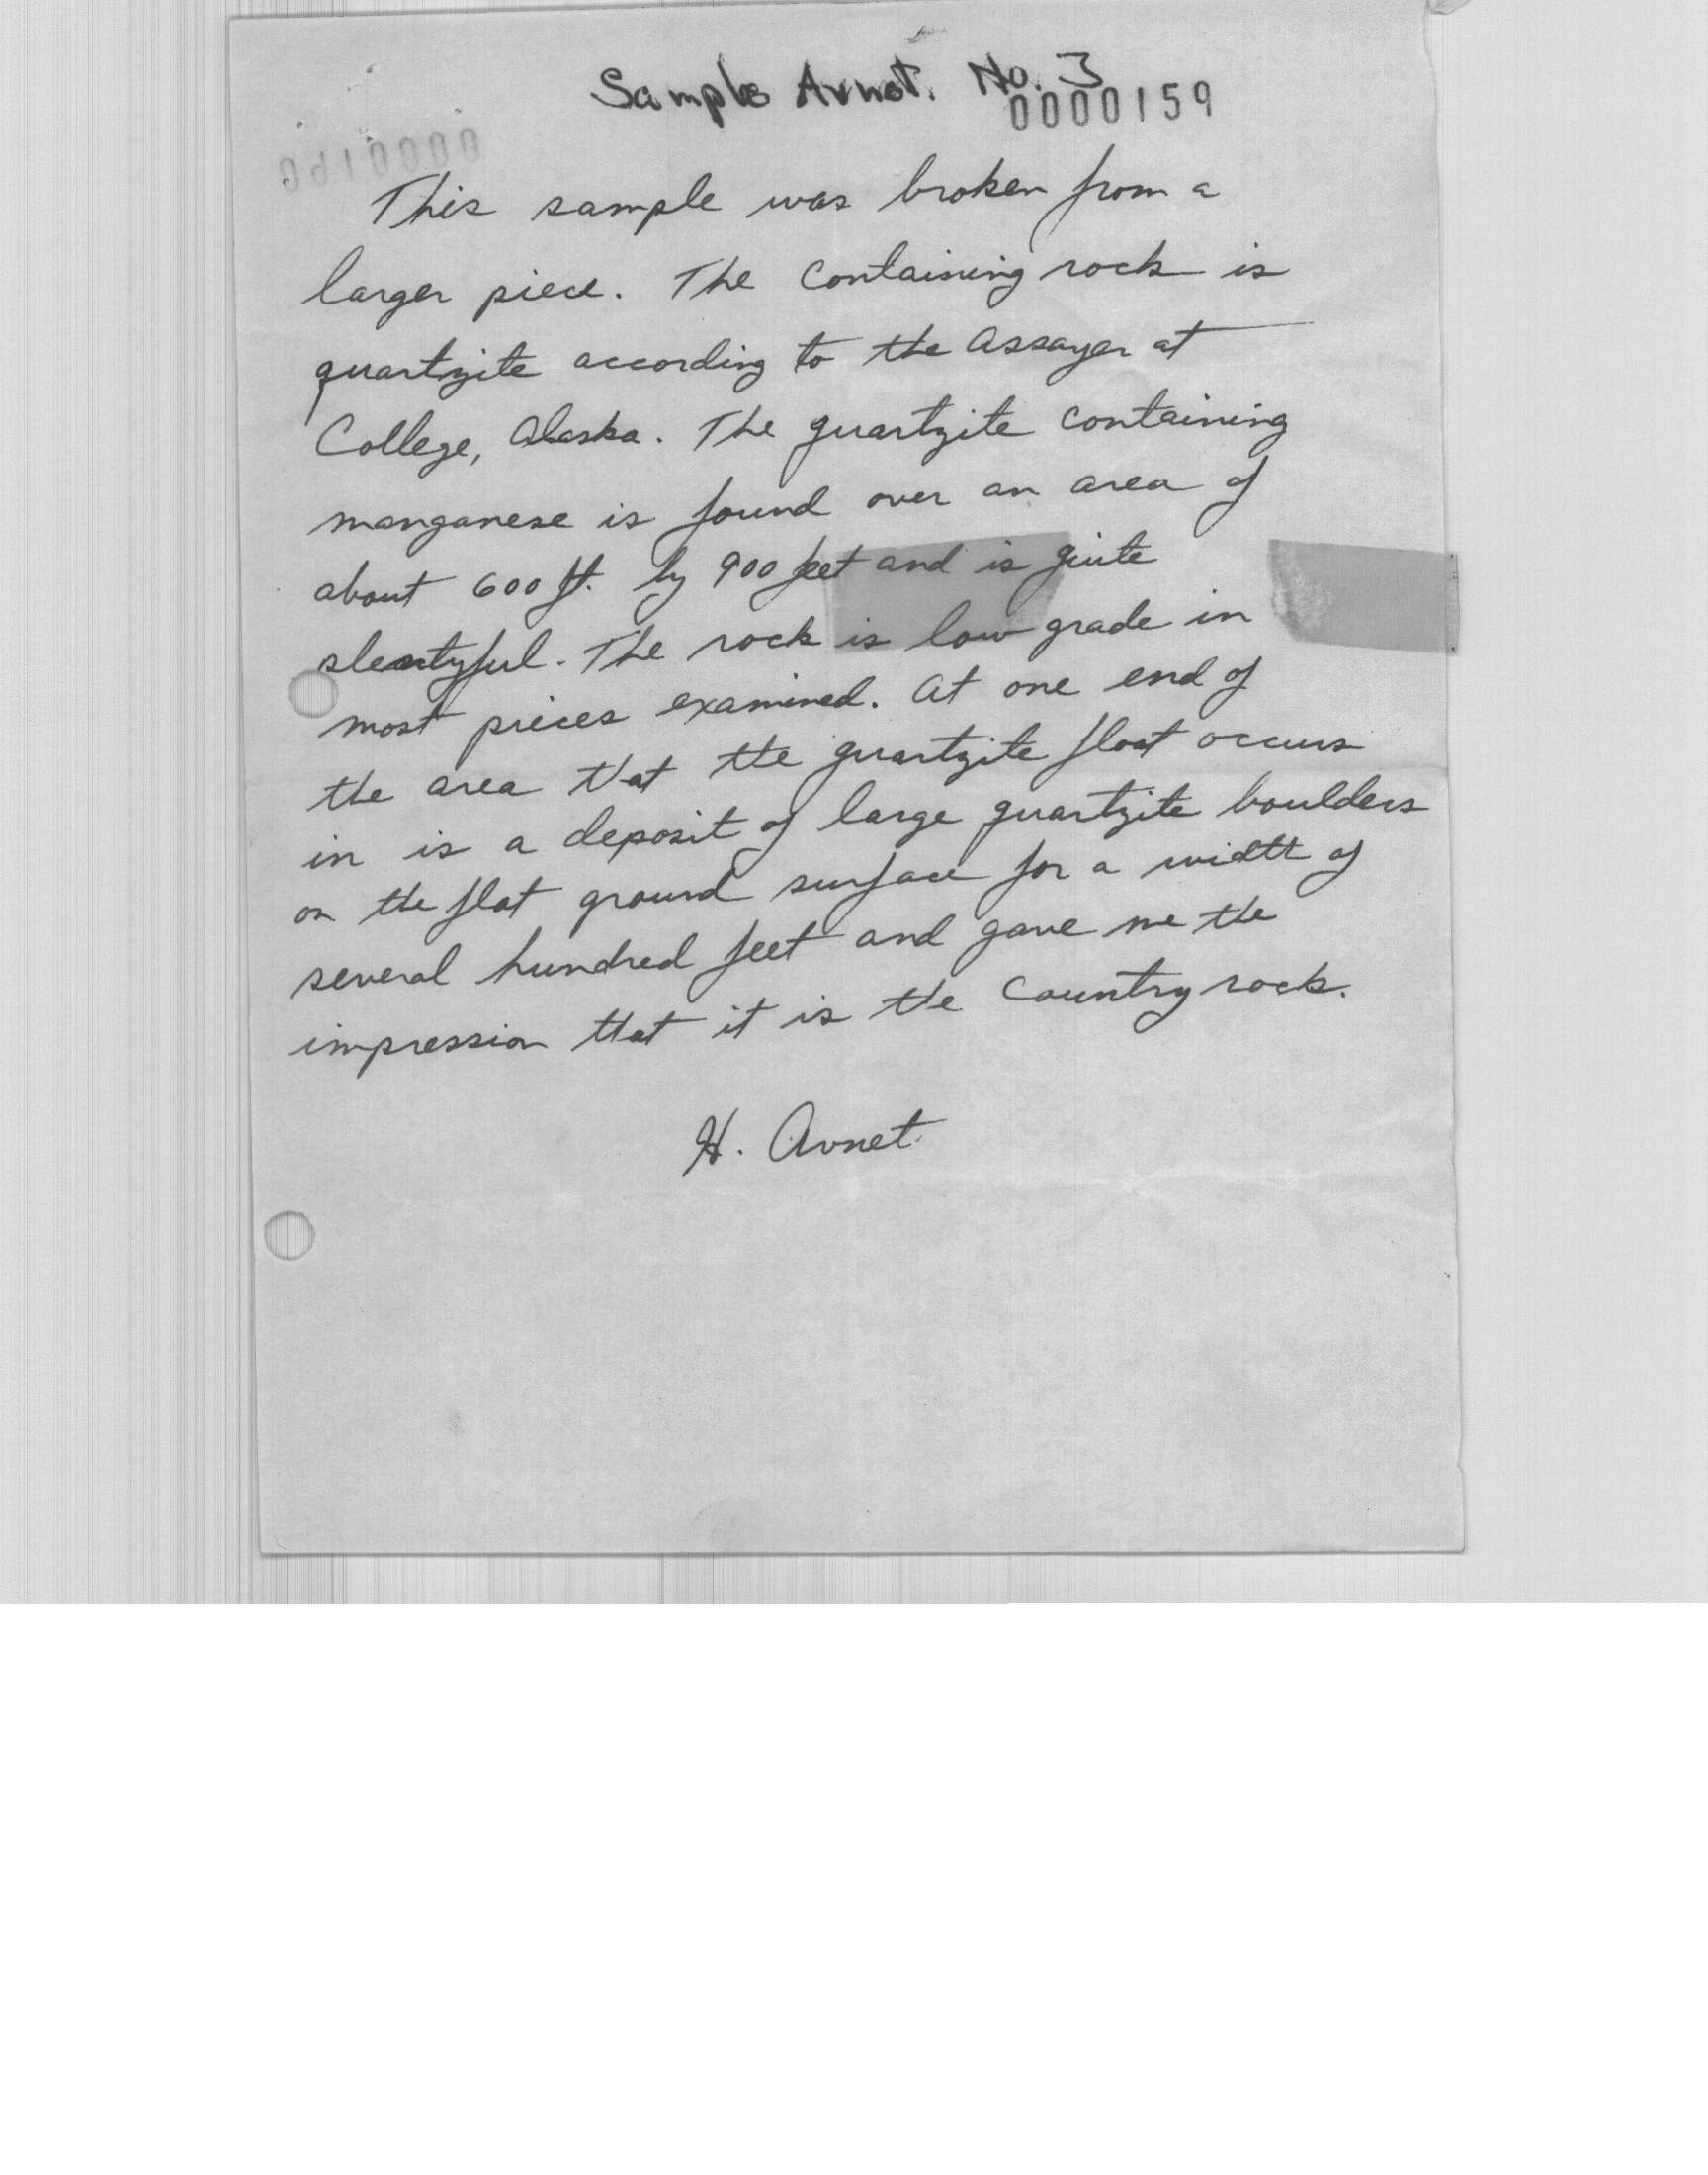 Sample Avnet. No. 3
0000159
This sample was broken from a
larger piece. The containing rock is
quartzite according to the assayer at
College, Alaska. The quartzite containing
manganese is found over an area of
about 600 ft. by 900 feet and is quite
plentyful. The rock is low grade in
most pieces examined. At one end of
the area that the quartzite float occurs
in is a deposit of large quartzite boulders
on the flat ground surface for a width of
several hundred feet and gave me the
impression that it is the country rock.
H. Avnet